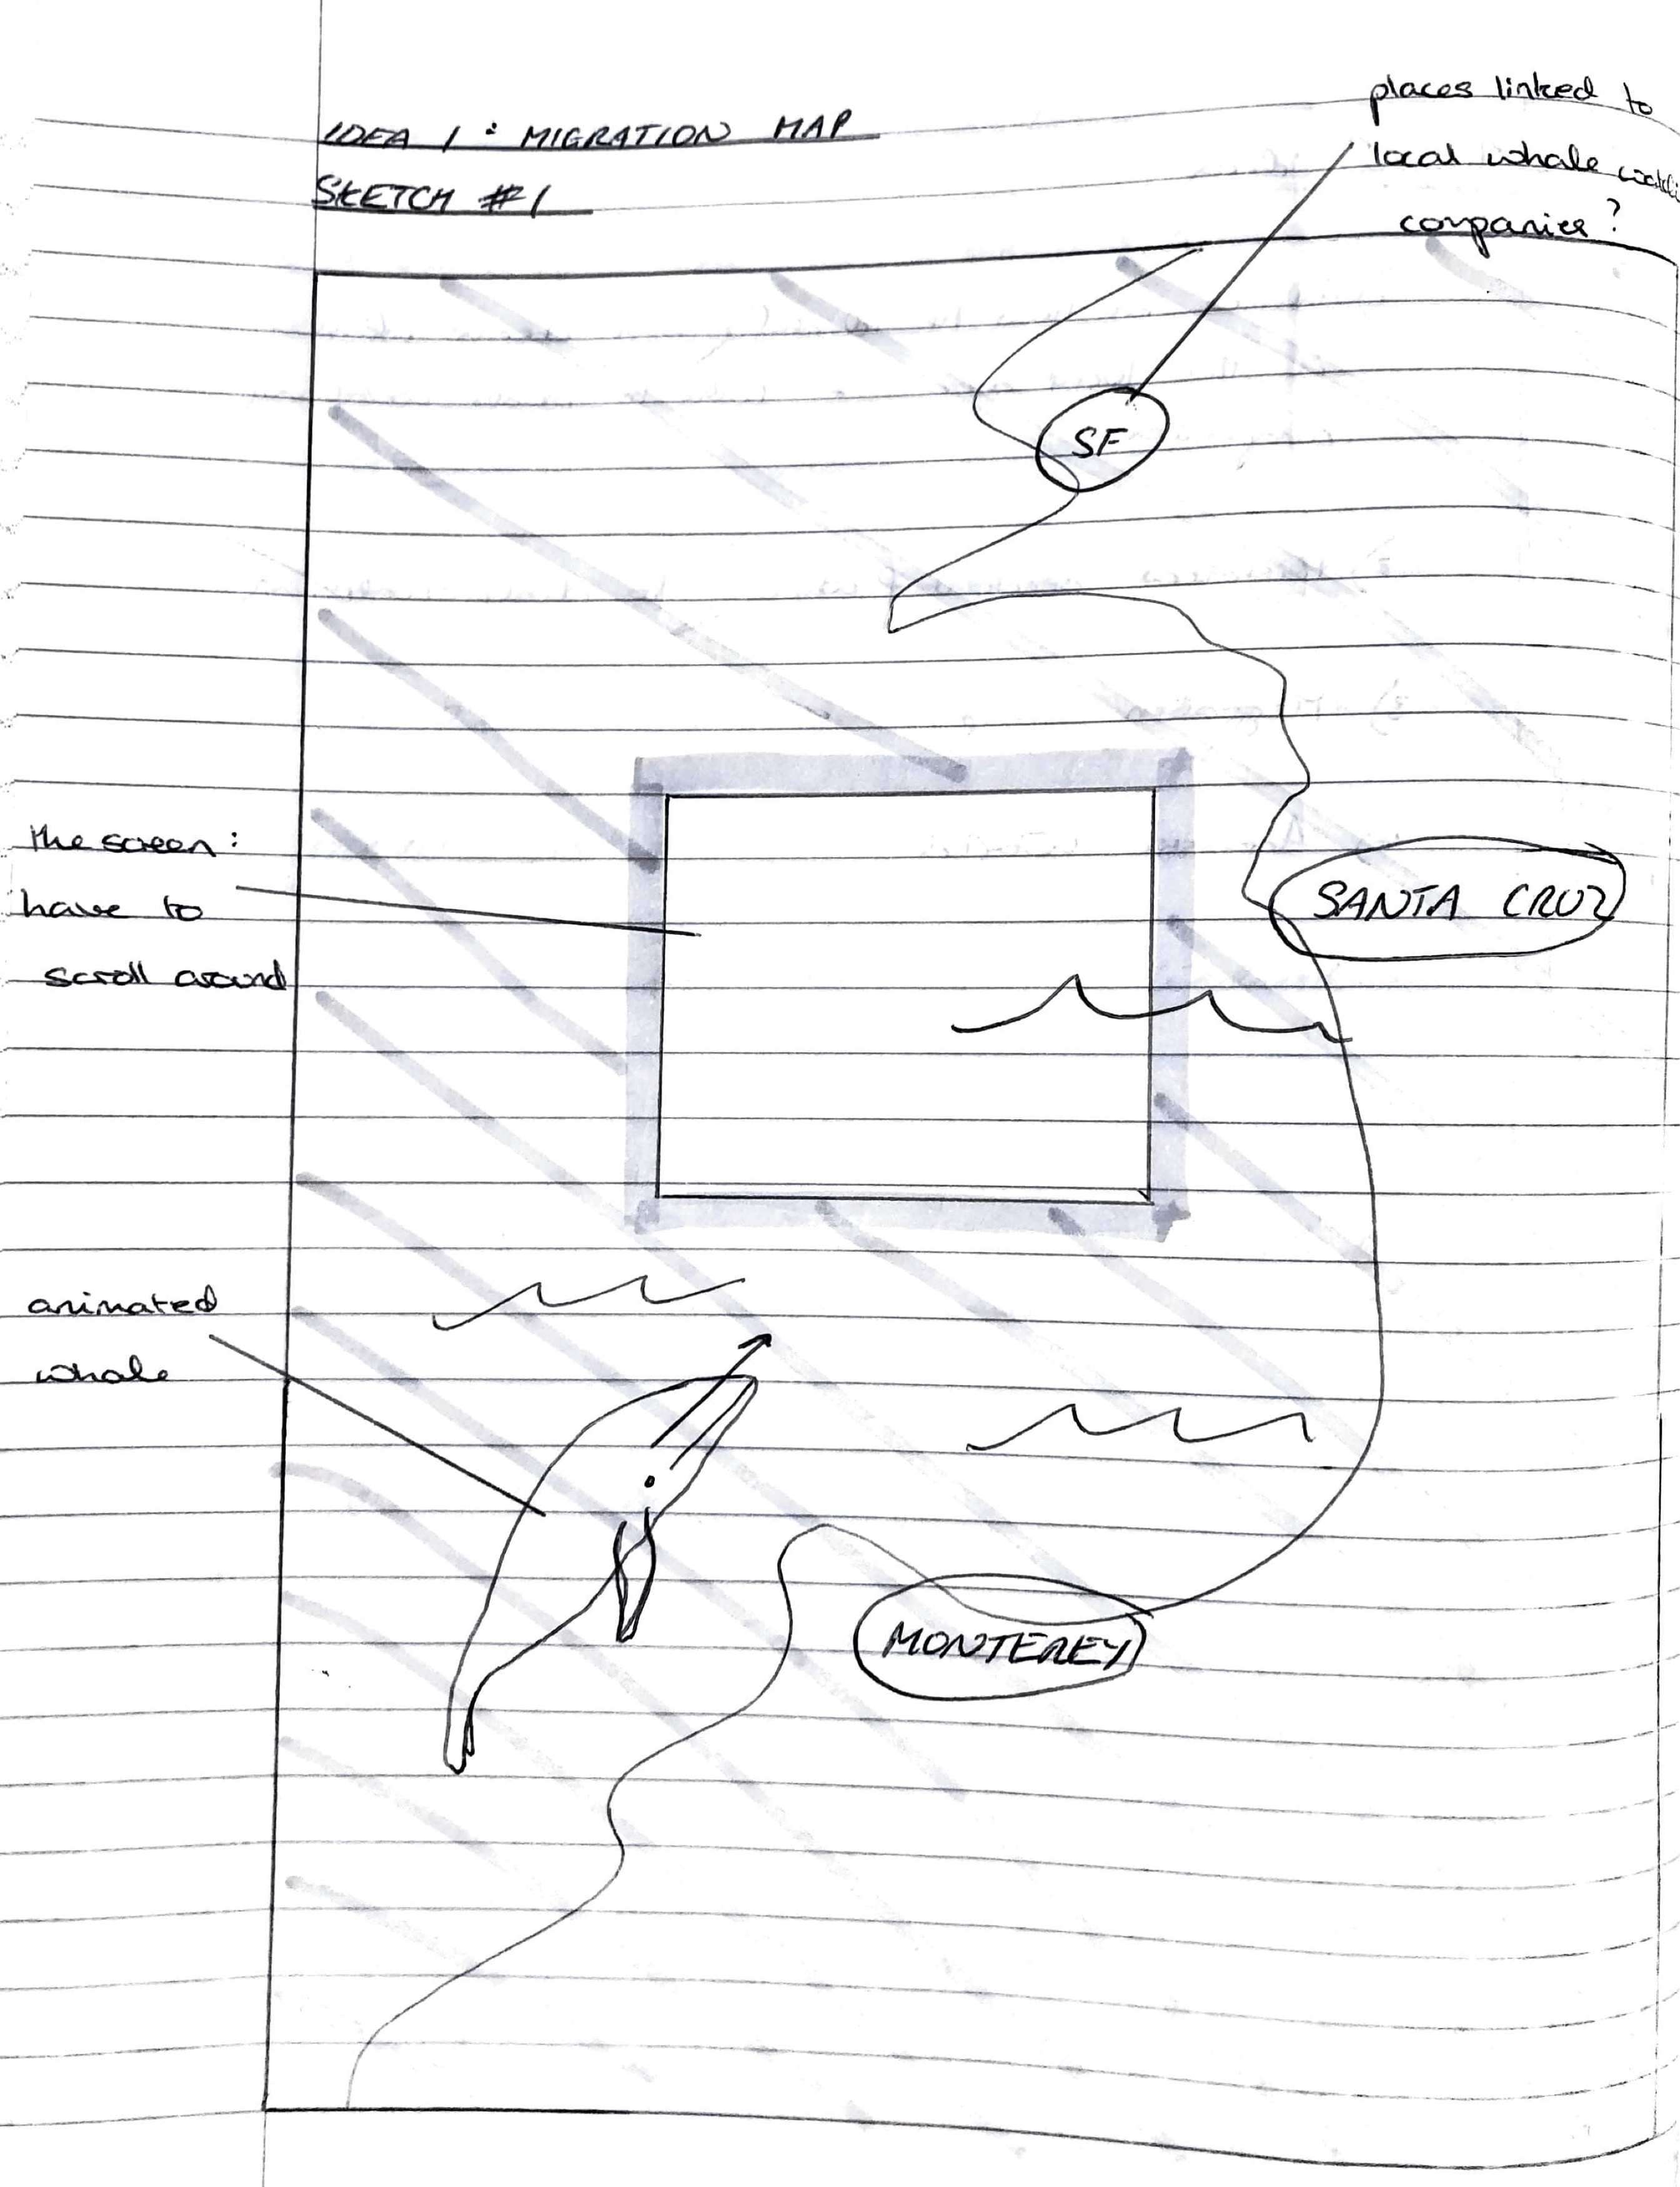 IDEA 1 : MIGRATION MAP
SKETCH #1
places linked to
local whale
companies?
SF
the screen:
have to
scroll around
SANTA CRUZ
animated
whale
MONTEREY